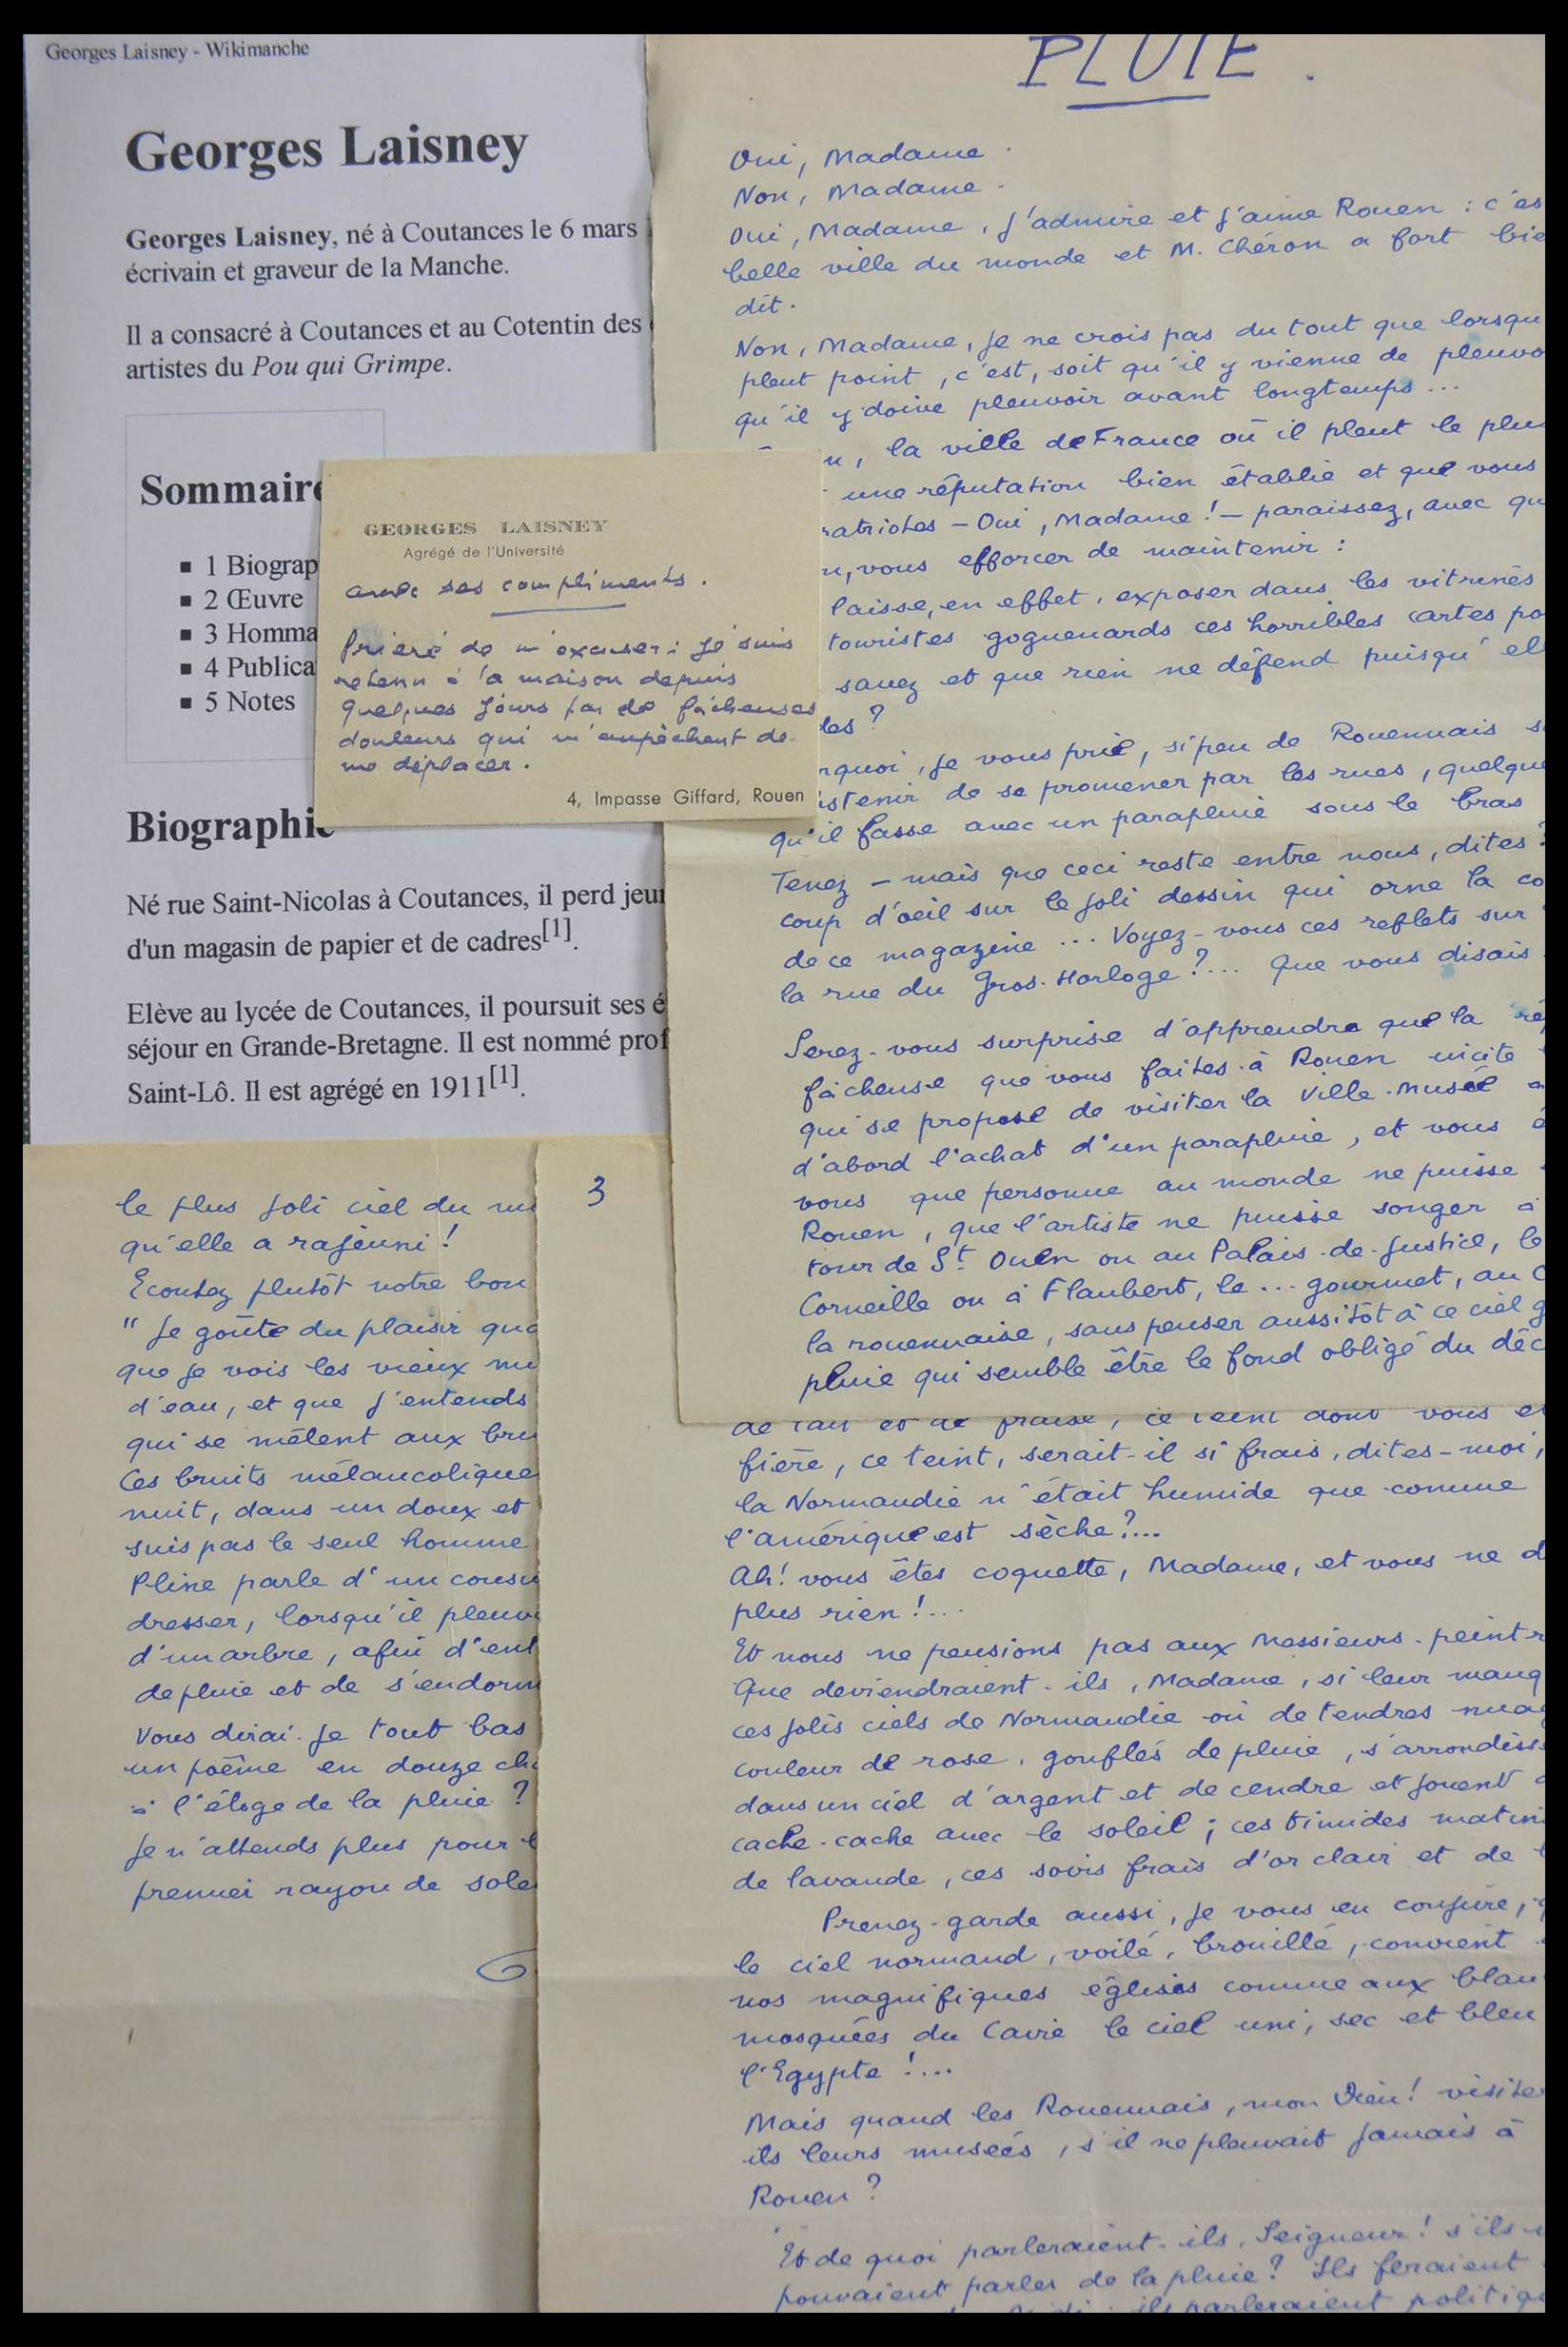 Georges Laisney - Wikimanche
Georges Laisney
Georges Laisney, né à Coutances le 6 mars
écrivain et graveur de la Manche.
Il a consacré à Coutances et au Cotentin des
artistes du Pou qui Grimpe.
Sommaire
▪ 1 Biograp
▪ 2 Œuvre
▪ 3 Homma
▪ 4 Publica
▪ 5 Notes
Biographie
Né rue Saint-Nicolas à Coutances, il perd jeun
d'un magasin de papier et de cadres[1].
Elève au lycée de Coutances, il poursuit ses é
séjour en Grande-Bretagne. Il est nommé prof
Saint-Lô. Il est agrégé en 1911[1].
GEORGES LAISNEY
Agrégé de l'Université
avec ses compliments.
Prière de m'excuser : je suis
retenu à la maison depuis
quelques jours par de fâcheuses
douleurs qui m'empêchent de
me déplacer.
4, Impasse Giffard, Rouen
PLUIE.
Oui, Madame.
Non, Madame.
Oui, Madame, j'admire et j'aime Rouen : c'es
belle ville du monde et M. Chéron a fort bie
dit.
Non, Madame, je ne crois pas du tout que lorsqu
pleut point, c'est, soit qu'il y vienne de pleuvo
qu'il y doive pleuvoir avant longtemps...
n, la ville de France où il pleut le plu
une réputation bien établie et que vous
atriotes - Oui, Madame ! - paraissez, avec qu
n, vous efforcer de maintenir :
laisse, en effet, exposer dans les vitrines
touristes goguenards ces horribles cartes po
savez et que rien ne défend puisqu'el
les ?
rquoi, je vous prie, si peu de Rouennais s
stenir de se promener par les rues, quelque
qu'il fasse avec un parapluie sous le bras
Tenez - mais que ceci reste entre nous, dites ?
coup d'oeil sur le joli dessin qui orne la co
de ce magazine ... Voyez-vous ces reflets sur
la rue du Gros-Horloge ?... Que vous disais
Serez-vous surprise d'apprendre que la ré
fâcheuse que vous faites à Rouen incite
qui se propose de visiter la Ville-Musée a
d'abord l'achat d'un parapluie, et vous é
vous que personne au monde ne puisse
Rouen, que l'artiste ne puisse songer à
tour de St Ouen ou au Palais-de-Justice, le
Corneille ou à Flaubert, le ... gourmet, au c
la rouennaise, sans penser aussitôt à ce ciel g
pluie qui semble être le fond obligé du déc
le plus joli ciel du mo
qu'elle a rajeuni !
Ecoutez plutôt notre bon
" Je goûte du plaisir qua
que je vois les vieux mu
d'eau, et que j'entends
qui se mêlent aux bru
Ces bruits mélancolique
nuit, dans un doux et
suis pas le seul homme
Pline parle d'un consu
dresser, lorsqu'il pleuv
d'un arbre, afin d'ent
de pluie et de s'endorm
Vous dirai-je tout bas
un poème en douze cha
à l'éloge de la pluie ?
Je n'attends plus pour l
premier rayon de sole
3
de lait et de fraise, ce teint dont vous ê
fière, ce teint, serait-il si frais, dites-moi,
la Normandie n'était humide que comme
l'Amérique est sèche ?...
Ah ! vous êtes coquette, Madame, et vous ne d
plus rien !...
Et nous ne pensions pas aux Messieurs-peintr
Que deviendraient-ils, Madame, si leur manq
ces jolis ciels de Normandie où de tendres nua
couleur de rose, gonflés de pluie, s'arrondiss
dans un ciel d'argent et de cendre et jouent à
cache-cache avec le soleil ; ces timides matin
de lavande, ces soirs frais d'or clair et de
Prenez-garde aussi, je vous en conjure, q
le ciel normand, voilé, brouillé, convient
nos magnifiques églises comme aux blan
mosquées du Caire le ciel uni, sec et bleu
l'Egypte !...
Mais quand les Rouennais, mon Dieu ! visite
ils leurs musées, s'il ne pleuvait jamais à
Rouen ?
Et de quoi parleraient-ils, Seigneur ! s'ils
pouvaient parler de la pluie ? Ils feraient
ils parleraient politiq